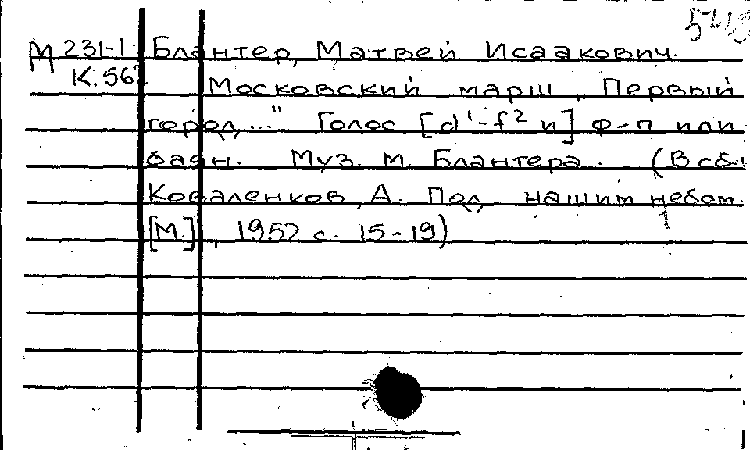 М 231-1 Блантер, Матвей Исаакович.
К. 56
Московский марш „Первый
город..." Голос [d¹-f² и] ф-п или
баян. Муз. М. Блантера. (В сб.:
Коваленков, А. Под нашим небом.
[М.], 1957 с. 15-19)